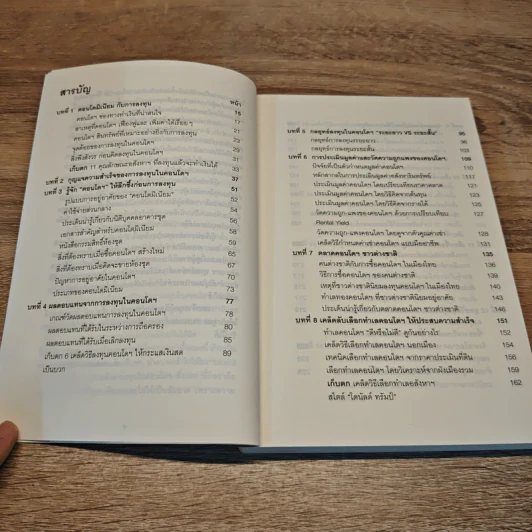 สารบัญ
หน้า
บทที่ 1 คอนโดมิเนียม กับการลงทุน 15
คอนโดฯ ช่องทางทำเงินที่น่าสนใจ 17
สาเหตุที่คอนโดฯ เฟื่องฟูและ เพิ่มค่าได้เรื่อยๆ 21
คอนโดฯ สินทรัพย์ที่เหมาะอย่างยิ่งกับการลงทุน 23
จุดด้อยของการลงทุนในคอนโดฯ 25
สิ่งพึงสังวร ก่อนคิดลงทุนในคอนโดฯ 31
เก็บตก 11 คุณลักษณะอสังหาฯ ที่ลงทุนแล้วจะทำเงินได้ 33
บทที่ 2 กุญแจความสำเร็จของการลงทุนในคอนโดฯ 37
บทที่ 3 รู้จัก "คอนโดฯ" ให้ลึกซึ้งก่อนการลงทุน 51
รูปแบบการอยู่อาศัยของ "คอนโดมิเนียม" 53
ค่าใช้จ่ายส่วนกลาง 54
ประเด็นน่ารู้เกี่ยวกับนิติบุคคลอาคารชุด 56
เอกสารสำคัญสำหรับห้องชุด 59
หนังสือกรรมสิทธิ์ห้องชุด 60
สิ่งที่ต้องทราบเมื่อคิดจะซื้อ คอนโดฯ สร้างใหม่ 65
สิ่งที่ต้องทราบเมื่อคิดจะขายห้องชุด 68
ปัญหาการอยู่อาศัยในคอนโดฯ
ประเภทของคอนโดมิเนียม
บทที่ 4 ผลตอบแทนจากการลงทุนในคอนโดฯ 77
เกณฑ์วัดผลตอบแทนการลงทุนในคอนโดฯ 78
ผลตอบแทนที่ได้รับในระหว่างการถือครอง 80
ผลตอบแทนที่ได้รับเมื่อเลิกลงทุน 85
เก็บตก 6 เคล็ดวิธีลงทุนคอนโดฯ ให้กระแสเงินสด 89
เป็นบวก
บทที่ 5 กลยุทธ์ลงทุนในคอนโดฯ "ระยะยาว VS ระยะสั้น" 95
กลยุทธ์การลงทุนระยะยาว 96
กลยุทธ์การลงทุนระยะสั้น
บทที่ 6 การประเมินมูลค่าและวัดความถูกแพงของคอนโดฯ 109
ปัจจัยที่เป็นตัวกำหนดมูลค่าคอนโดฯ 110
หลักสากลในการประเมินมูลค่าอสังหาริมทรัพย์ 117
ประเมินมูลค่าคอนโดฯ โดยเปรียบเทียบราคาตลาด
ประเมินมูลค่าคอนโดฯ โดยวิธีคิดจากต้นทุน
ประเมินมูลค่าคอนโดฯ โดยวิธีคิดจากรายได้
วัดความถูก-แพงคอนโดฯ ด้วยการเปรียบเทียบ 127
Rental Yield
วัดความถูก-แพงคอนโดฯ โดยดูจากตัวคูณค่าเช่า 128
เคล็ดวิธีกำหนดค่าเช่าคอนโดฯ แบบมืออาชีพ 130
บทที่ 7 ตลาดคอนโดฯ ชาวต่างชาติ 135
คนต่างชาติกับการซื้อคอนโดฯ ในเมืองไทย 136
วิธีการซื้อคอนโดฯ ของคนต่างชาติ 139
เหตุที่ชาวต่างชาตินิยมลงทุนคอนโดฯ ในเมืองไทย 143
ทำเลทองคอนโดฯ ที่ชาวต่างชาตินิยมอยู่อาศัย 144
ประเด็นน่ารู้เกี่ยวกับตลาดคอนโดฯ ชาวต่างชาติ 147
บทที่ 8 เคล็ดลับเลือกทำเลคอนโดฯ ให้ประสบความสำเร็จ 151
ทำเลคอนโดฯ "ดีหรือไม่ดี" ดูกันอย่างไร 152
เคล็ดวิธีเลือกทำเลคอนโดฯ นอกเมือง 156
เทคนิคเลือกทำเลคอนโดฯ จากราคาประเมินที่ดิน 157
เลือกทำเลคอนโดฯ โดยวิเคราะห์จากผังเมืองรวม 159
เก็บตก เคล็ดวิธีเลือกทำเลอสังหาฯ 162
สไตล์ "โดนัลด์ ทรัมป์"